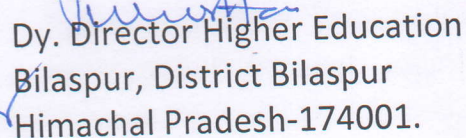 Dy. Director Higher Education
Bilaspur, District Bilaspur
Himachal Pradesh-174001.